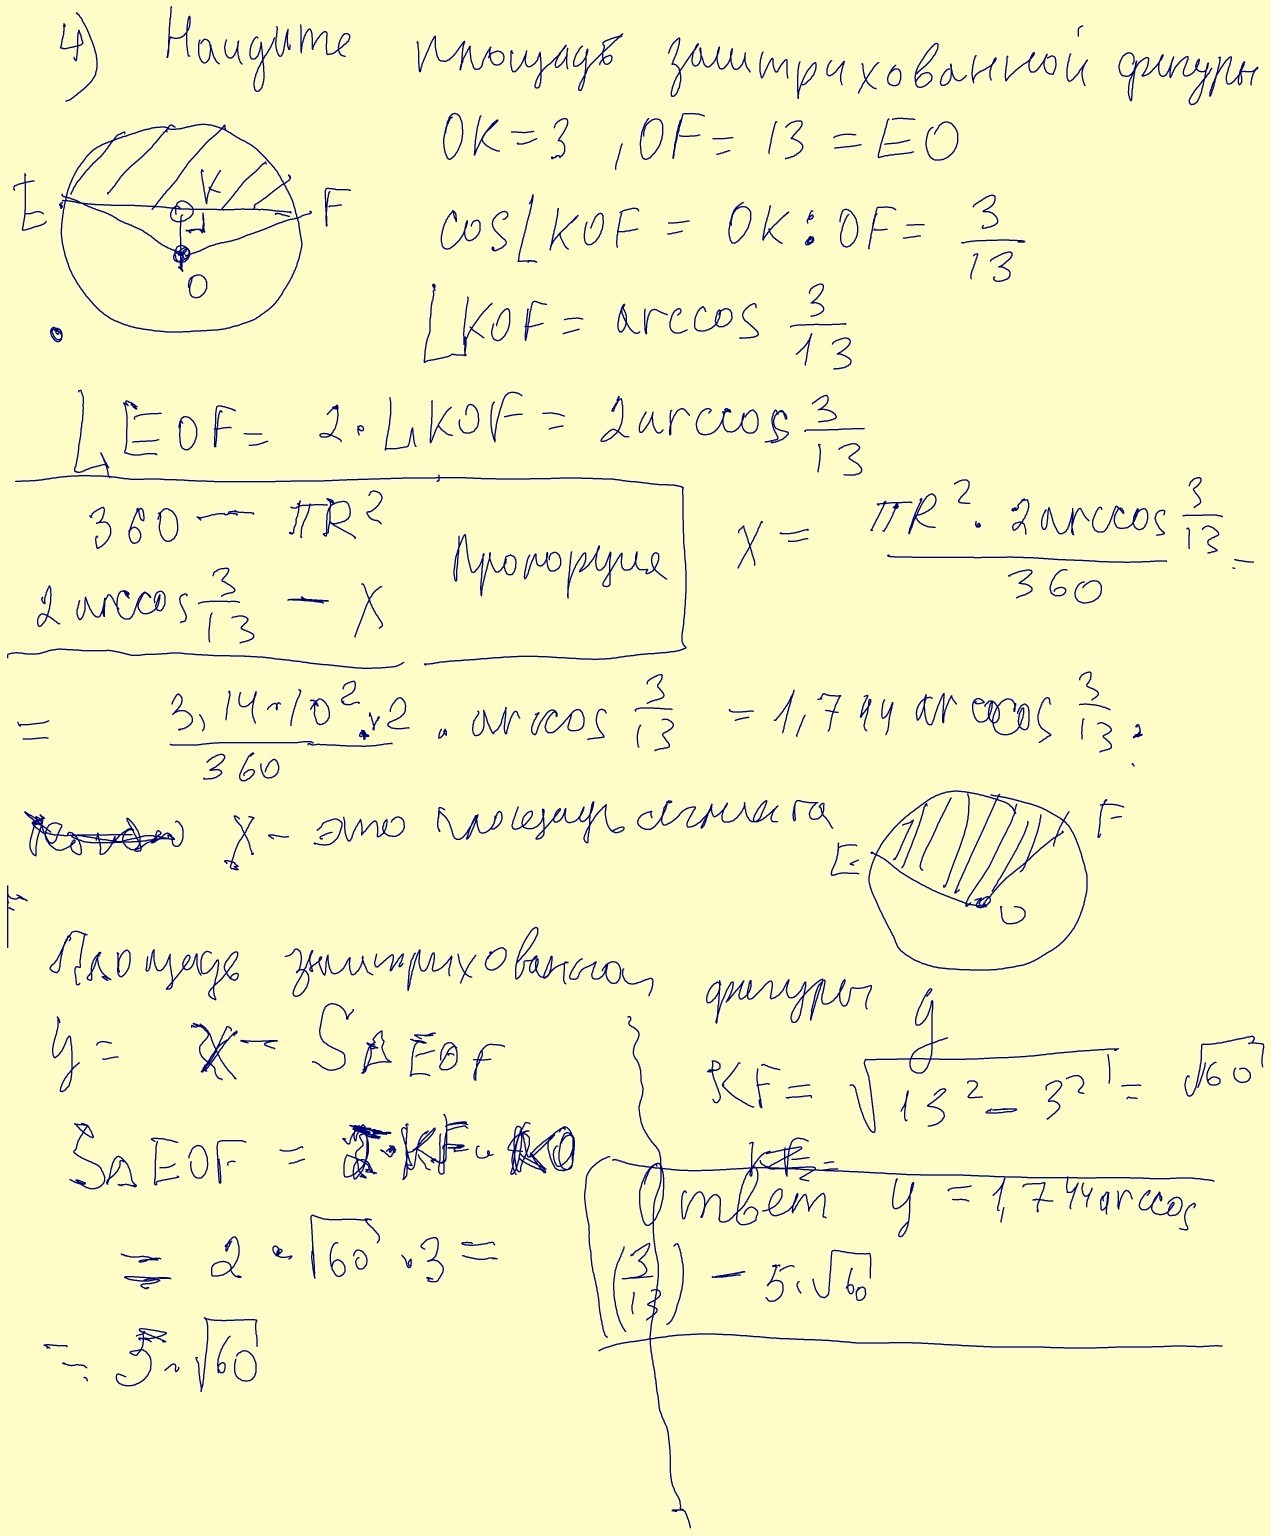 4) Найдите площадь заштрихованной фигуры
OK = 3 , OF = 13 = EO
E K F
O
cos∠KOF = OK : OF = 3/13
∠KOF = arccos 3/13
∠EOF = 2·∠KOF = 2arccos 3/13
360 — πR²
2arccos 3/13 — X
Пропорция
X = πR² · 2arccos 3/13 / 360 =
= 3,14·10²·2 / 360 · arccos 3/13 = 1,744 arccos 3/13
X - это площадь сегмента
E F
O
Площадь заштрихованной фигуры y
y = X - S△EOF
KF = √(13² - 3²) = √60
S△EOF = KF · KO
= 2 · √60 · 3 =
= 5·√60
Ответ y = 1,744 arccos
(3/13) - 5·√60